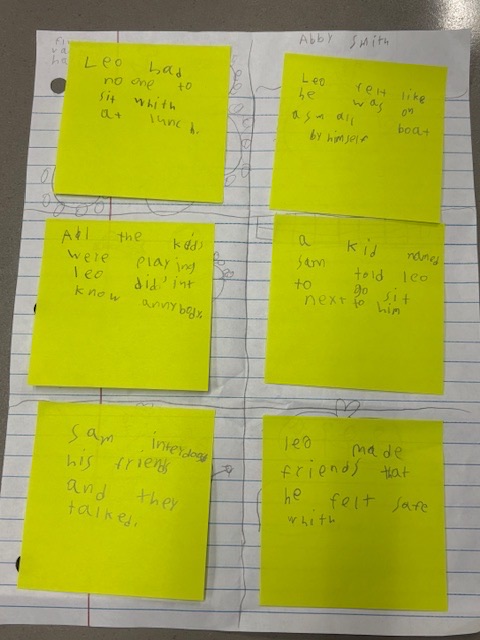 Abby Smith
Leo had
no one to
sit whith
at lunch.
Leo felt like
he was on
a small boat
by himself
All the kids
were playing
leo did'int
know annybody.
a kid named
sam told leo
to go sit
next to him
Sam
his friends
and they
talked.
leo made
friends that
he felt safe
whith